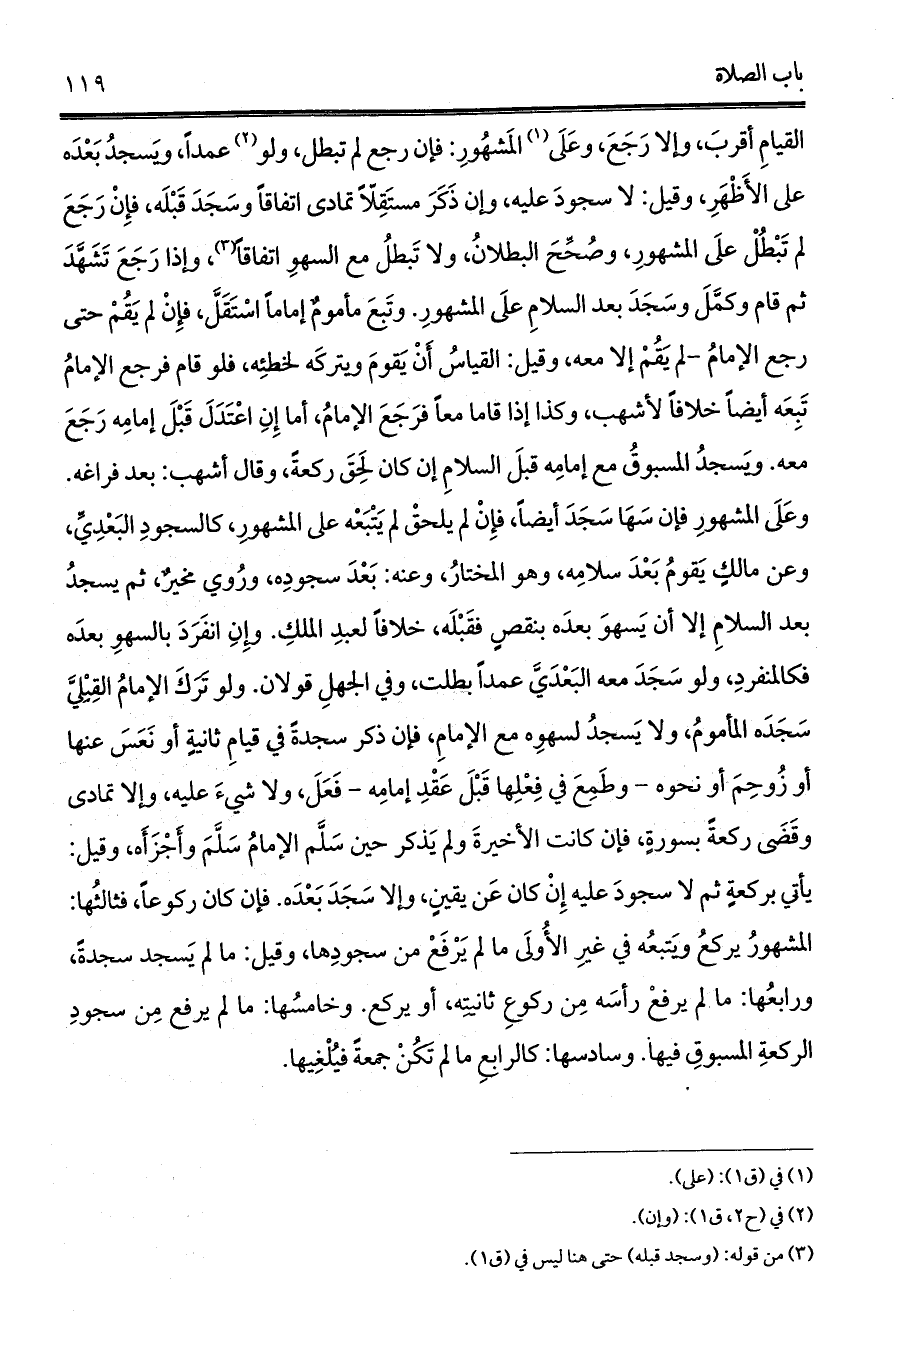 باب الصلاة
١١٩
القيامِ أقربَ، وإلا رَجَعَ، وعَلَى(١) المَشهُورِ: فإن رجع لم تبطل، ولو(٢) عمداً، ويَسجدُ بَعْدَه
على الأَظْهَرِ، وقيل: لا سجودَ عليه، وإن ذَكَرَ مستَقِلّاً تمادى اتفاقاً وسَجَدَ قَبْلَه، فإنْ رَجَعَ
لم تَبْطُلْ علَى المشهورِ، وصُحِّحَ البطلانُ، ولا تَبطلُ مع السهوِ اتفاقاً(٣)، وإذا رَجَعَ تَشَهَّدَ
ثم قام وكمَّلَ وسَجَدَ بعد السلامِ علَى المشهورِ. وتَبعَ مأمومٌ إماماً اسْتَقَلَّ، فإنْ لم يَقُمْ حتى
رجع الإمامُ –لم يَقُمْ إلا معه، وقيل: القياسُ أنْ يَقومَ ويتركَه لخطئِه، فلو قام فرجع الإمامُ
تَبِعَه أيضاً خلافاً لأشهب، وكذا إذا قاما معاً فرَجَعَ الإمامُ، أما إنِ اعْتَدَلَ قَبْلَ إمامِه رَجَعَ
معه. ويَسجدُ المسبوقُ مع إمامِه قبلَ السلامِ إن كان لَحِقَ ركعةً، وقال أشهب: بعد فراغه.
وعَلَى المشهورِ فإن سَهَا سَجَدَ أيضاً، فإنْ لم يلحقْ لم يَتْبَعْه على المشهورِ، كالسجودِ البَعْدِيِّ،
وعن مالكٍ يَقومُ بَعْدَ سلامِه، وهو المختارُ، وعنه: بَعْدَ سجودِه، ورُوي مخيرٌ، ثم يسجدُ
بعد السلامِ إلا أن يَسهوَ بعدَه بنقصٍ فقَبْلَه، خلافاً لعبدِ الملكِ. وإنِ انفَرَدَ بالسهوِ بعدَه
فكالمنفردِ، ولو سَجَدَ معه البَعْدَيَّ عمداً بطلت، وفي الجهلِ قولان. ولو تَرَكَ الإمامُ القِبْلِيَّ
سَجَدَه المأمومُ، ولا يَسجدُ لسهوِه مع الإمامِ، فإن ذكر سجدةً في قيامِ ثانيةٍ أو نَعَسَ عنها
أو زُوحِمَ أو نحوه – وطَمِعَ في فِعْلِها قَبْلَ عَقْدِ إمامِه – فَعَلَ، ولا شيءَ عليه، وإلا تمادى
وقَضَى ركعةً بسورةٍ، فإن كانت الأخيرةَ ولم يَذكر حين سَلَّم الإمامُ سَلَّمَ وأَجْزَأَه، وقيل:
يأتي بركعةٍ ثم لا سجودَ عليه إنْ كان عَن يقينٍ، وإلا سَجَدَ بَعْدَه. فإن كان ركوعاً، فثالثُها:
المشهورُ يركعُ ويَتبعُه في غيرِ الأُولَى ما لم يَرْفَعْ من سجودِها، وقيل: ما لم يَسجد سجدةً،
ورابعُها: ما لم يرفعْ رأسَه مِن ركوعِ ثانيتِه، أو يركع. وخامسُها: ما لم يرفع مِن سجودِ
الركعةِ المسبوقِ فيها. وسادسها: كالرابعِ ما لم تَكُنْ جمعةً فيُلْغِيها.
(١) في (ق١): (على).
(٢) في (ح٢، ق١): (وإن).
(٣) من قوله: (وسجد قبله) حتى هنا ليس في (ق١).